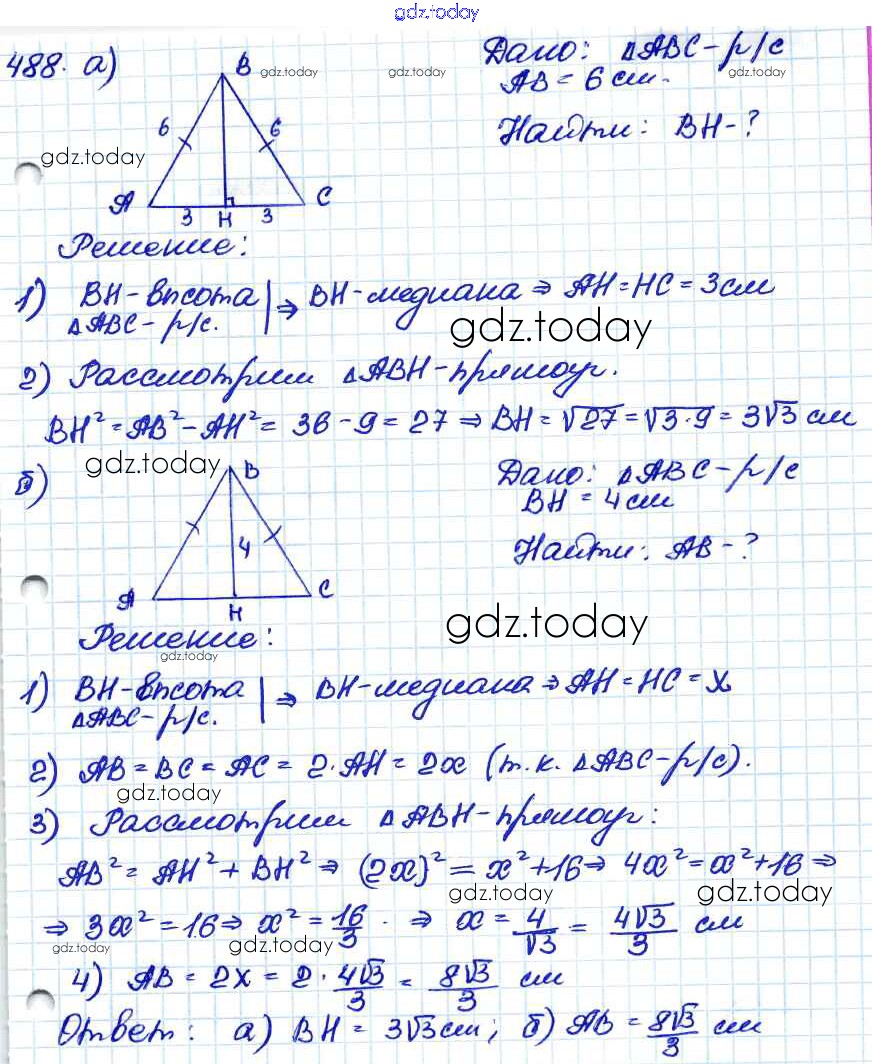 gdz.today
488. а)
B
gdz.today
gdz.today
gdz.today
Дано: △ABC-р/с
AB = 6 см.
Найти: BH-?
6
6
gdz.today
A
3
H
3
C
Решение:
1) BH-высота | ⇒ BH-медиана ⇒ AH = HC = 3см
△ABC-р/с.
gdz.today
2) Рассмотрим △ABH-прямоуг.
BH² = AB² - AH² = 36 - 9 = 27 ⇒ BH = √27 = √3·9 = 3√3 см
gdz.today
б)
B
4
A
H
C
Дано: △ABC-р/с
BH = 4см
Найти: AB-?
gdz.today
Решение:
gdz.today
1) BH-высота | ⇒ BH-медиана ⇒ AH = HC = x
△ABC-р/с.
2) AB = BC = AC = 2·AH = 2x (т.к. △ABC-р/с).
gdz.today
3) Рассмотрим △ABH-прямоуг:
AB² = AH² + BH² ⇒ (2x)² = x² + 16 ⇒ 4x² = x² + 16 ⇒
gdz.today
gdz.today
⇒ 3x² = 16 ⇒ x² = 16/3 · ⇒ x = 4/√3 = 4√3/3 см
gdz.today
gdz.today
4) AB = 2x = 2·4√3/3 = 8√3/3 см
Ответ: а) BH = 3√3см; б) AB = 8√3/3 см